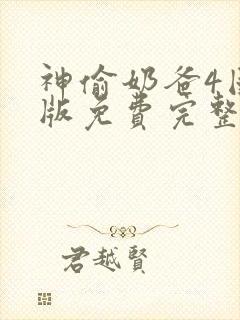 神偷奶爸4国
版免费完整
君越賢